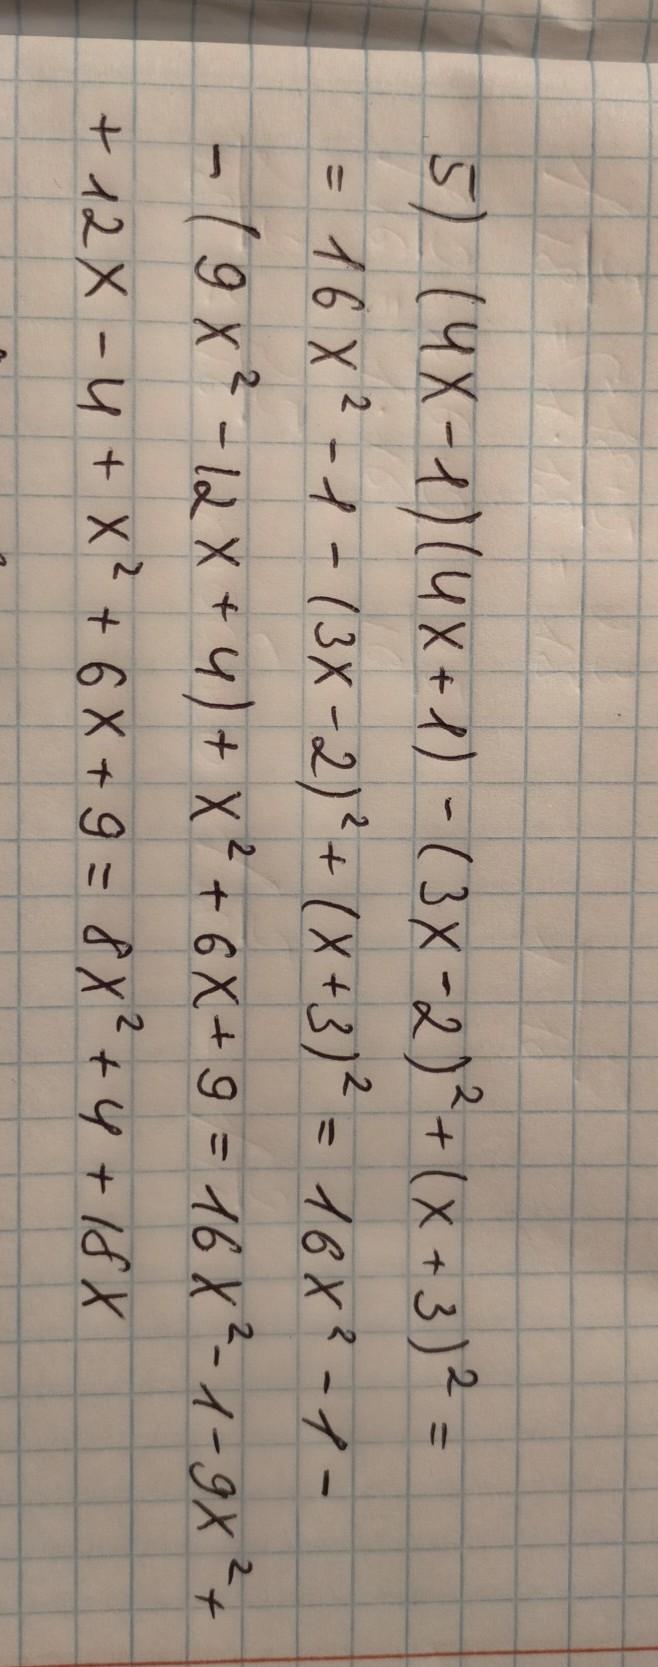 5) (4x-1)(4x+1)-(3x-2)²+(x+3)²=
= 16x²-1-(3x-2)²+(x+3)²=16x²-1-
-(9x²-12x+4)+x²+6x+9=16x²-1-9x²+
+12x-4+x²+6x+9=8x²+4+18x